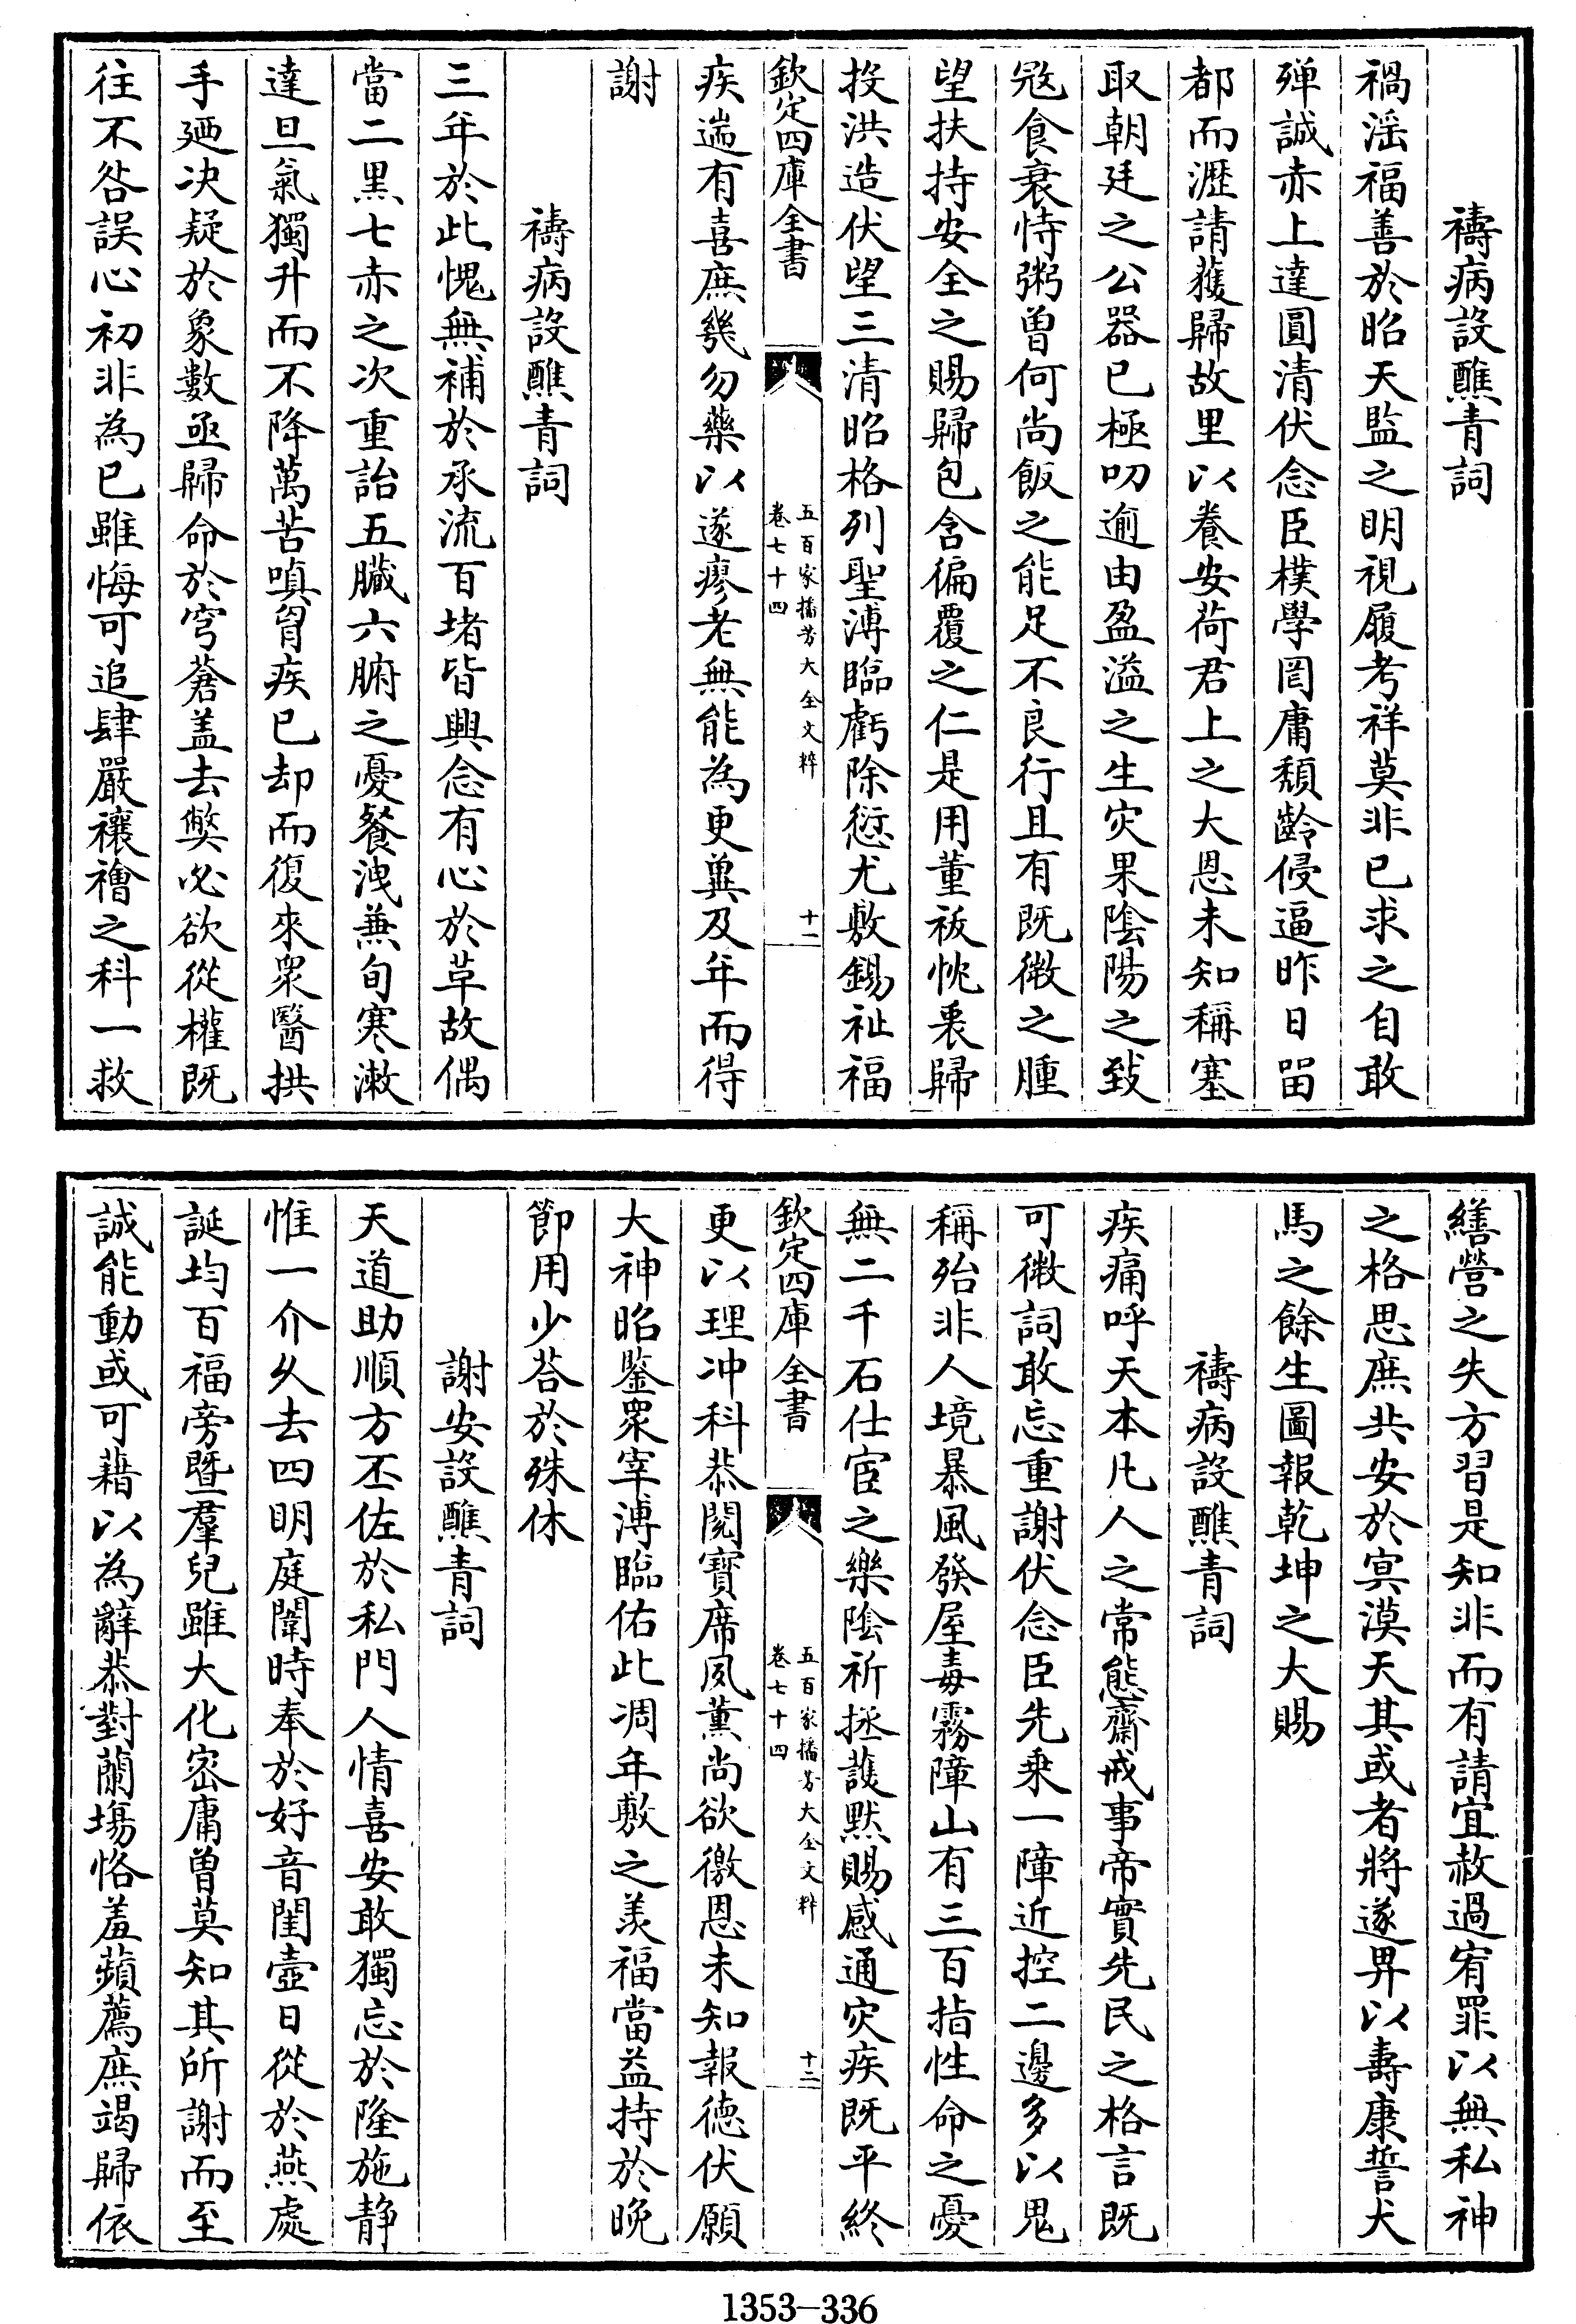 禱病設醮青詞
禍淫福善於昭天監之明視履考祥莫非已求之自敢
殫誠赤上達圓清伏念臣樸學罔庸頽齡侵逼昨日留
都而瀝請獲歸故里以養安荷君上之大恩未知稱塞
取朝廷之公器已極叨逾由盈溢之生灾果陰陽之致
寇食衰恃粥曽何尚飯之能足不良行且有既微之腫
望扶持安全之賜歸包含徧覆之仁是用薰祓忱衷歸
投洪造伏望三清昭格列聖溥臨虧除愆尤敷錫祉福
欽定四庫全書
五百家播芳大全文粹
卷七十四
十一
疾遄有喜庶幾勿藥以遂瘳老無能為更冀及年而得
謝
禱病設醮青詞
三年於此愧無補於承流百堵皆興念有心於革故偶
當二黒七赤之次重詒五臟六腑之憂餐洩兼旬寒漱
達旦氣獨升而不降萬苦嗔胷疾已却而復來衆醫拱
手廼决疑於象數亟歸命於穹蒼盖去弊必欲從權既
往不咎誤心初非為已雖悔可追肆嚴禳禬之科一救
繕營之失方習是知非而有請宜赦過宥罪以無私神
之格思庶共安於㝠漠天其或者將遂畀以壽康誓犬
馬之餘生圖報乾坤之大賜
禱病設醮青詞
疾痛呼天本凡人之常態齋戒事帝實先民之格言既
可微詞敢忘重謝伏念臣先乗一障近控二邊多以鬼
稱殆非人境暴風發屋毒霧障山有三百指性命之憂
無二千石仕宦之樂陰祈拯護黙賜感通灾疾既平終
欽定四庫全書
五百家播芳大全文粹
卷七十四
十二
更以理冲科恭閲寳席夙薰尚欲徼恩未知報徳伏願
大神昭鑒衆宰溥臨佑此凋年敷之羡福當益持於晚
節用少荅於殊休
謝安設醮青詞
天道助順方丕佐於私門人情喜安敢獨忘於隆施静
惟一介久去四明庭闈時奉於好音閨壼日從於燕處
誕均百福旁暨羣兒雖大化密庸曽莫知其所謝而至
誠能動或可藉以為辭恭對蘭塲恪羞蘋薦庶竭歸依
1353—336